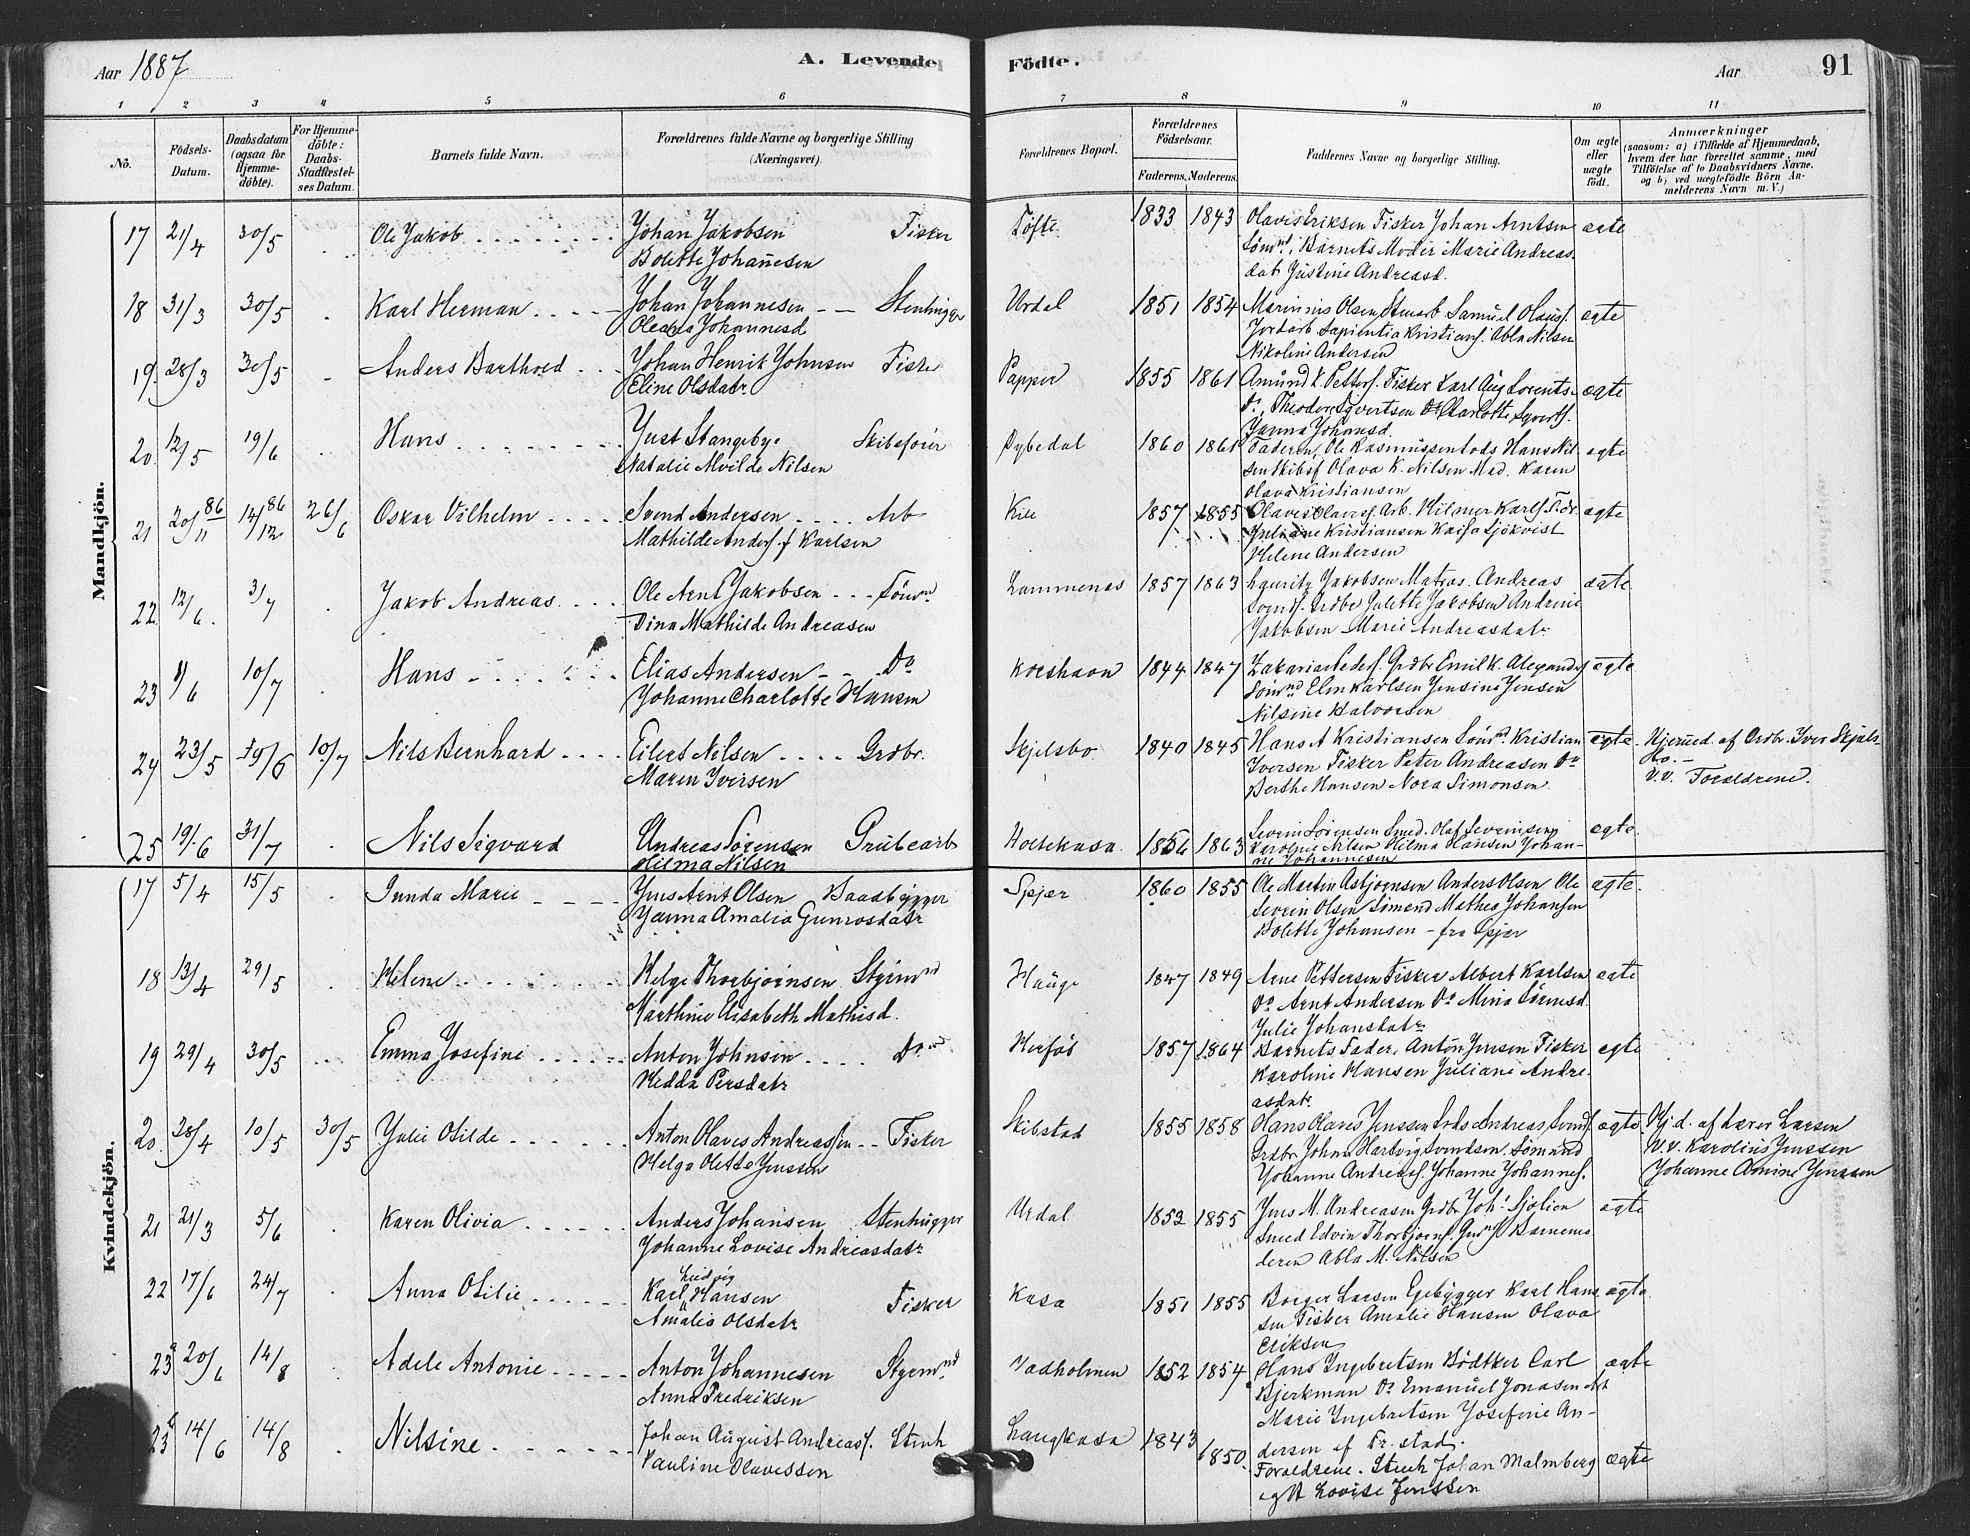 Aar 1887
A. Levende
Födte.
Aar
91
1 2 3 4 5 6 7 8 9 10 11
No.
Födsels-
Datum.
Daabsdatum
(ogsaa for
Hjemme-
döbte).
For Hjemme-
döbte:
Daabs-
Stadfæstel-
ses Datum.
Barnets fulde Navn.
Forældrenes fulde Navne og borgerlige Stilling
(Næringsvei).
Forældrenes Bopæl.
Forældrenes
Födselsaar.
Faderens. Moderens.
Faddernes Navne og borgerlige Stilling.
Om ægte
eller
uægte
födt.
Anmærkninger
(saasom: a) i Tilfælde af Hjemmedaab,
hvem der har forrettet samme, med
Tilföielse af to Daabsvidners Navne.
og b) ved uægtefödte Börn An-
melderens Navn m. V.)
Mandkjön.
17 21/4 30/5 Ole Jakob Johan Jakobsen Fisker Töfte 1833 1843 Olavis Eriksen Fisker Johan Arntsen ægte
Bolette Johannesen Sömnd, Barnets Moder Marie Andreas
dat Justine Andreasd.
18 31/3 30/5 Karl Herman Johan Johannesen Stenhugger Urdal 1851 1854 Marinius Olsen Stenarb Samuel Olaus. ægte
Oleana Johannesd Jordarb Sapientia Kristians. Abla Nilsen
Nikoline Andersen
19. 28/3 30/5 Anders Barthold Johan Henrik Johnsen Fisker Papper 1855 1861 Amund K. Petters. Fisker Karl Aug Lorents. ægte
Eline Olsdatr Do, Theodor Syvertsen Do Charlotte Syverts.
Janna Johansd
20. 12/5 19/6 Hans Just Stangebye Skibsförer Dybedal 1860 1861 Faderen, Ole Rasmussen Lods Hans Nil ægte
Natalie Alvilde Nilsen sen Skibsf Olava K. Nilsen Mad. Karen
Olava Kristiansen
21 20/11 86 14/12 86 26/6 Oskar Vilhelm Svend Andersen Arb Kile 1857 1855 Olavis Olaves. Arb. Hilmer Karls. Fisk. ægte
Mathilde Anders. f Karlsen Juliane Kristiansen Kaisa Sjökvist
Helene Andersen
22. 12/6. 3/7 Jakob Andreas Ole Arnt Jakobsen Sömnd Lammenes 1857 1863 Lauritz Jakobsen Matros. Andreas ægte
Dina Mathilde Andreasen Svends. Grdbr Julette Jakobsen Andrine
Jakobsen Marie Andreasdatr
23 9/6 10/7 Hans Elias Andersen Do Korshavn 1844 1847 Zakarias Peders. Grdbr Emil K. Alexanders ægte
Johanne Charlotte Hansen Sömnd Elen Karlsen Jensine Jensen
Nilsine Halvorsen
24 23/5 19/6 10/7 Nils Bernhard Eilert Nilsen Grdbr. Skjelsbo 1840 1845 Hans A Kristiansen Sömnd. Kristian ægte Hjemmed af Grdbr. Iver Skjels
Maren Iversen Iversen Fisker Peter Andreasen Do bo.
Berthe Hansen Nora Simonsen V.V. Forældrene.
25 19/6 31/7 Nils Sigvard Andreas Sörensen Grubearb Holtekasa. 1856 1863 Severin Sörensen Smed. Olaf Severinsen ægte.
Hilma Nilsen Karoline Nilsen Hilma Hansen Johan-
ne Johannesen
Kvindekjön.
17 5/4 15/5 Gunda Marie Jens Arnt Olsen Baadbygger Spjær 1860 1855 Ole Martin Asbjörnsen Anders Olsen Ole ægte.
Janna Amalia Gunrosdatr Severin Olsen Sömænd Mathea Johansen
Bolette Johansen - fra Spjær
18 13/4 29/5 Helene Helge Thorbjörnsen Styrmnd Hauge 1847 1849 Arne Pettersen Fisker Albert Karlsen ægte
Marthine Elisabeth Mathisd. Do Arnt Andersen Do Mina Sörensd.
Julie Johansdatr
19 29/4 30/5 Emma Josefine Anton Johnsen Do Herföl 1857 1864 Barnets Fader, Anton Jensen Fisker ægte
Hedda Persdatr Karoline Hansen Juliane Andre-
asdatr.
20. 28/4 10/5 30/5 Julie Otilde Anton Olaves Andreassen Fisker Skibstad 1855 1858 Hans Olaves Jenssen Lods Andreas Svends. ægte. Hj.d. af Lærer Larsen
Helga Olette Jenssen Grdbr Johan Hartvig Svendsen. Sömænd V.V. Karolius Jenssen
Johanne Andreas. Johanne Johannes. Johanne Amine Jenssen
21 21/3 5/6 Karen Olivia Anders Johansen Stenhugger Urdal 1852 1855 Jens M. Andreasen Grdbr Joh. Sjölien ægte
Johanne Lovise Andreasdatr Smed Edvin Thorbjörns. Barnemo
deren Abla M. Nilsen
22 17/6 24/7 Anna Otilie Karl Ludvig Hansen Fisker Kasa 1851 1855 Borger Larsen Egebygger Karl Han ægte
Amalia Olsdatr sen Fisker Amalie Hansen Olava
Eriksen
23 20/6 14/8 Adele Antonie Anton Johannesen Styrmnd. Vadholmen 1852 1854 Hans Ingebretsen Bödtker Carl ægte
Anna Fredriksen Bjerkman Do Emanuel Jonasen Art
Marie Ingebretsen Josefine An-
dersen af Fr.stad.
23 14/6 14/8 Nilsine Johan August Andreas. Stenh Langkasa 1843 1850. Forældrene. Stenh Johan Malmberg ægte
Pauline Olavessen og H Lovise Jenssen